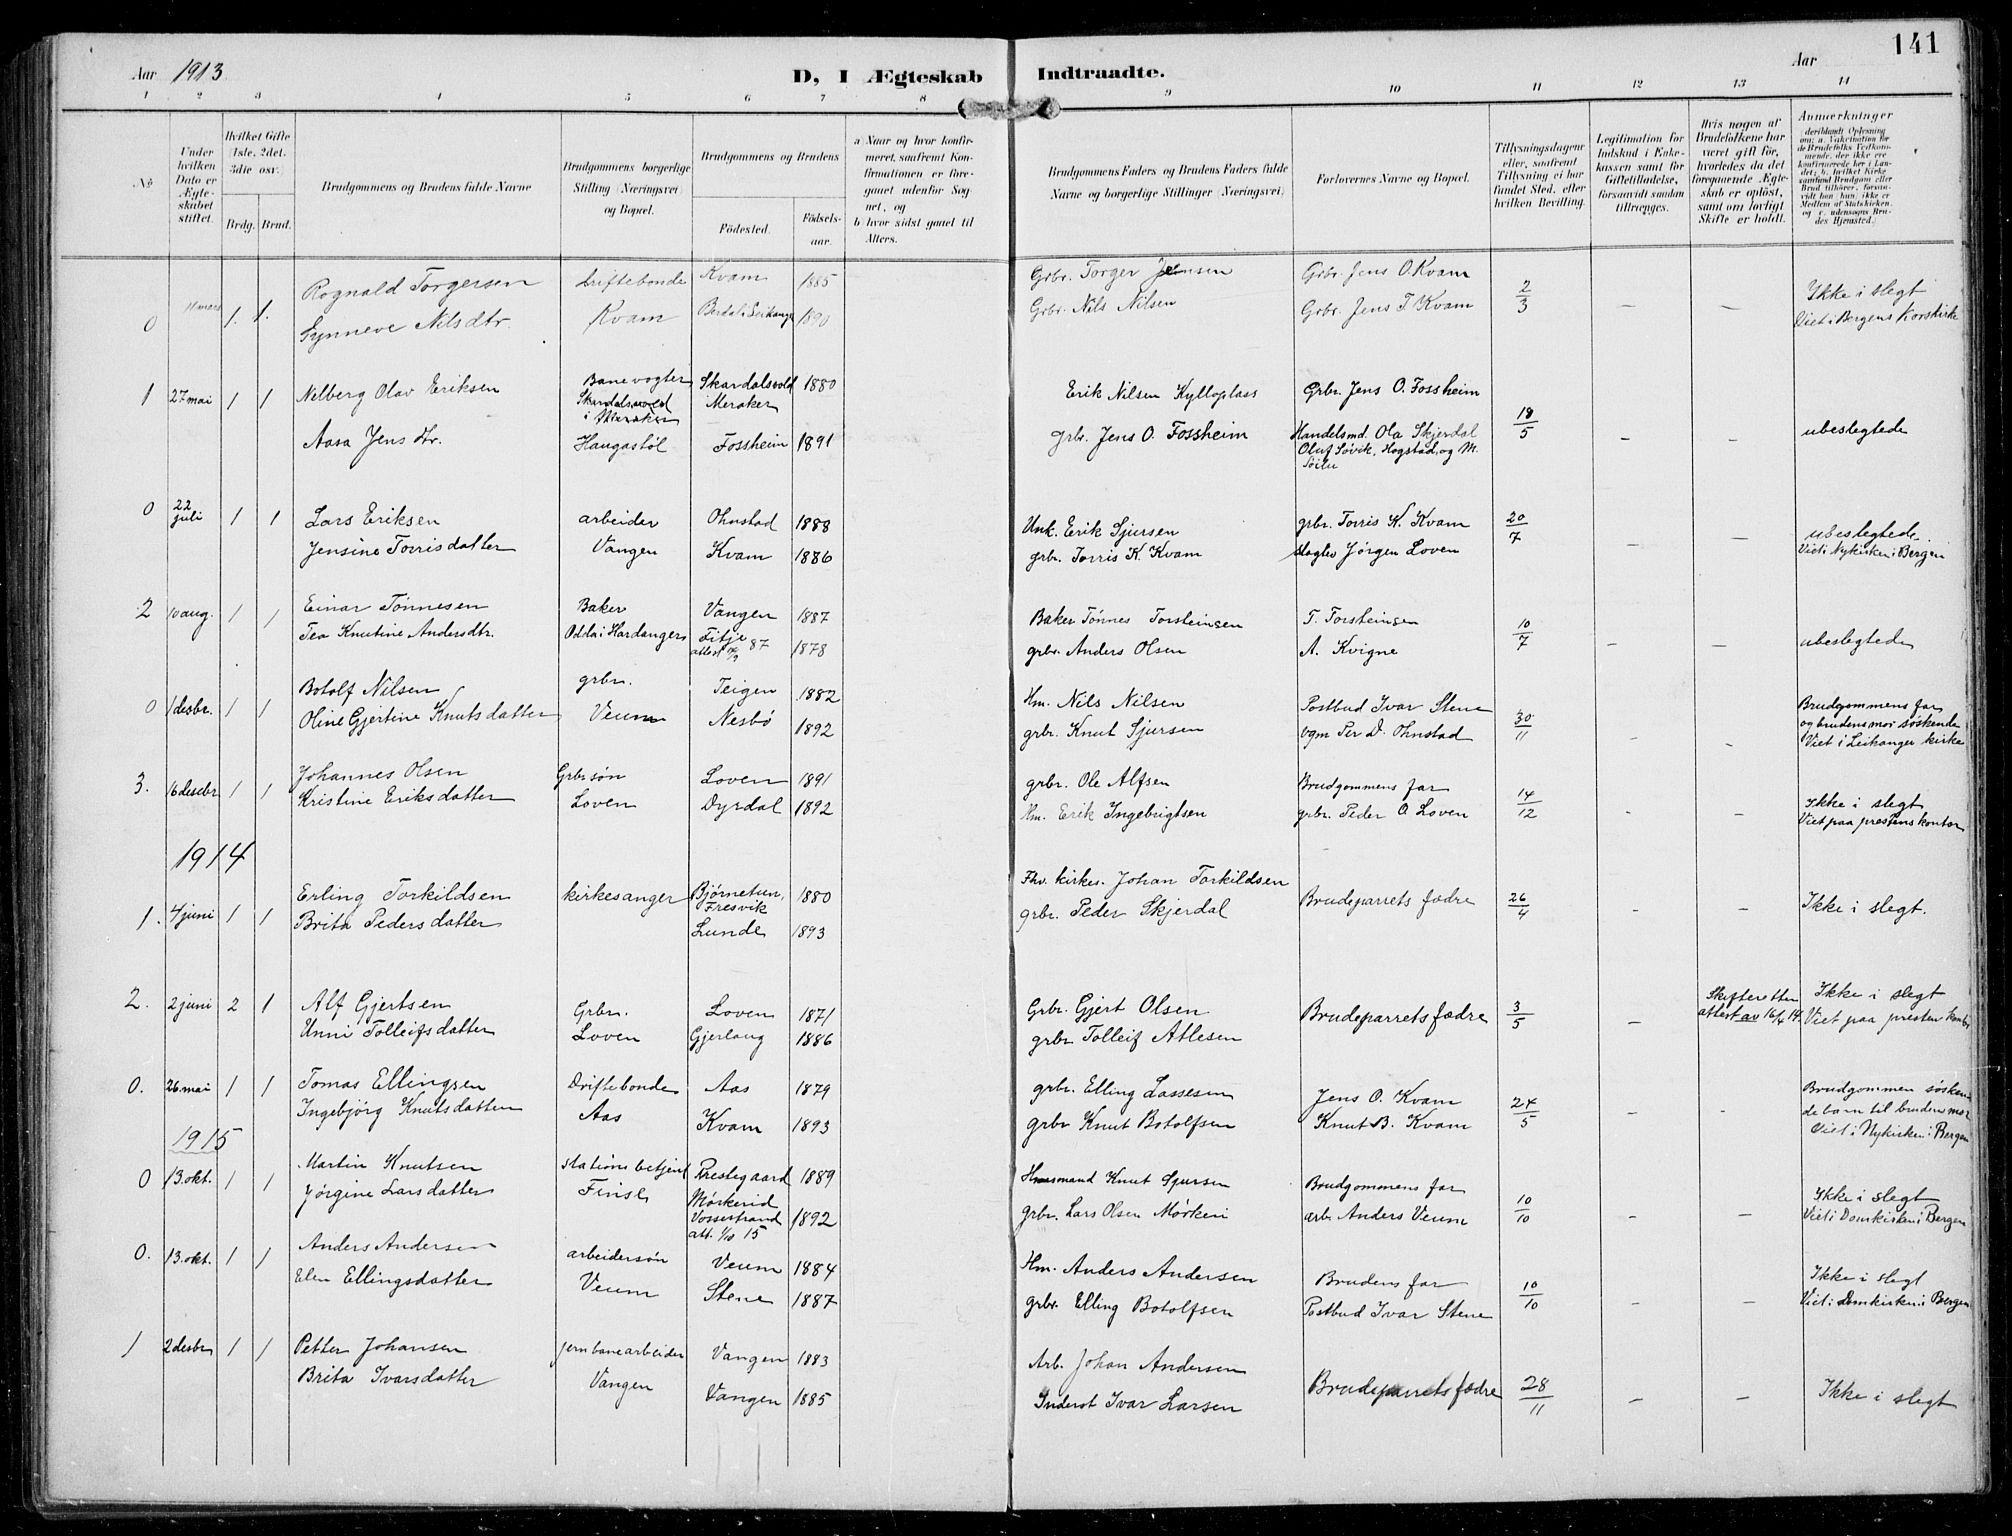 141
Aar 1913
D, I Ægteskab Indtraadte.
Aar
1 2 3 4 5 6 7 8 9 10 11 12 13 14
No
Under hvilken Dato er Ægteskabet stiftet.
Hvilket Gifte 1ste, 2det, 3die osv.
Brdg. Brud.
Brudgommens og Brudens fulde Navne
Brudgommens borgerlige Stilling (Næringsvei) og Bopæl.
Brudgommens og Brudens
Födested.
Födselsaar.
a Naar og hvor konfirmeret, saafremt Konfirmationen er foregaaet udenför Sognet, og
b hvor sidst gaaet til Alters.
Brudgommens Faders og Brudens Faders fulde Navne og borgerlige Stillinger (Næringsvei)
Forlovernes Navne og Bopæl.
Tillysningsdagene eller, saafremt Tillysning ei har fundet Sted, efter hvilken Bevilling.
Legitimation for Indskud i Enkekassen samt for Giftetilladelse, forsaavidt saadan tiltrænges.
Hvis nogen af Brudefolkene har været gift för, hvorledes da det foregaaende Ægteskab er oplöst, samt om lovligt Skifte er holdt.
Anmærkninger
0 1. 1. Rognald Torgersen Driftebonde Kvam 1885 Grbr. Torger Jensen Grbr. Jens O. Kvam 2/3 – – Ikke i slegt
Synneve Nilsdtr. Kvam 1890 Grbr. Nils Nilsen Grbr. Jens T. Kvam Viet i Bergens Korskirke
1 27 mai 1 1 Nelberg Olav Eriksen Banevogter Skardalsvold 1880 Erik Nilsen Kylloplass Grbr. Jens O. Fossheim 18/5 – – ubeslegtede
Skardalsvold i Meraker Meraker
Aasa Jens dtr. Haugastøl Fossheim 1891 grbr. Jens O. Fossheim Handelsmd. Ola Skjerdal
Oluf Søvik, Hogstad, og M.
0 22 juli 1 1 Lars Eriksen arbeider Ohnstad 1888 Unk. Erik Sjursen grbr. Torris K. Kvam 20/7 – – ubeslegtede.
Jensine Torrisdatter Vangen Kvam 1886 grbr. Torris K. Kvam slagter Jørgen Loven Viet i Nykirken i Bergen
2 10 aug. 1 1 Einar Tønnesen Baker Vangen 1887 Baker Tønnes Torsteinsen T. Torsteinsen 10/7 – – ubeslegtede
Tea Knutine Andersdtr. Odda i Hardanger Fitje 1878 grbr. Anders Olsen A. Kvigne
0 1 desbr. 1 1 Botolf Nilsen grbr. Teigen 1882 Hm. Nils Nilsen Postbud Ivar Stene 30/11 – – Brudgommens far
Oline Gjertine Knutsdatter Veum Nesbø 1892 grbr. Knut Sjursen vgm Per D. Ohnstad og brudens mor søskende
Viet i Leikanger kirke
3. 16 desbr 1 1 Johannes Olsen Grbr søn Loven 1891 grbr. Ole Alfsen Brudgommens far 14/12 – – Ikke i slegt
Kristine Eriksdatter Loven Dyrdal 1892 Hm. Erik Ingebrigtsen grbr. Peder O. Loven Viet paa prestens kontor
1914
1. 4 juni 1 1 Erling Torkildsen kirkesanger Bjørnetun, Fresvik 1880 Fhv. kirkes. Johan Torkildsen Brudeparrets fædre 26/4 – – Ikke i slegt.
Brita Pedersdatter Lunde 1893 grbr. Peder Skjerdal
2. 2 juni 2 1 Alf Gjertsen Grbr. Loven 1871 Grbr. Gjert Olsen Brudeparrets fædre 3/5 – Skifteretten attest av 16/4 14. Ikke i slegt
Unni Tolleifsdatter Loven Gjerlaug 1886 grbr. Tolleif Atlesen Viet paa presten kontor
0. 26. mai 1 1 Tomas Ellingsen Driftebonde Aas 1879 grbr. Elling Lassesen Jens O. Kvam 24/5 – – Brudgommen søsken-
Ingebjørg Knutsdatter Aas Kvam 1893 grbr Knut Botolfsen Knut B. Kvam de barn til brudens mor
Viet i Nykirken i Bergen
1915
0 13. okt. 1 1 Martin Knutsen stationsbetjent Prestegaard 1889 Husmand Knut Sjursen Brudgommens far 10/10 – – Ikke i slegt
Jørgine Larsdatter Finse Mørkerid Vossestrand att. 1/10 15 1892 grbr. Lars Olsen Mørkeri arb. Anders Veum Viet i Domkirken i Bergen
0. 13. okt. 1 1 Anders Andersen arbeidersøn Veum 1884 Hm. Anders Andersen Brudens far 10/10 – – Ikke i slegt
Elen Ellingsdatter Veum Stene 1887 grbr. Elling Botolfsen Postbud Ivar Stene Viet i Domkirken i Bergen
1 2 desbr 1 1 Petter Johansen jernbanearbeider Vangen 1883 Arb. Johan Andersen Brudeparrets fædre 28/11 – – Ikke i slegt
Brita Ivarsdatter Vangen Vangen 1885 Inderst Ivar Larsen